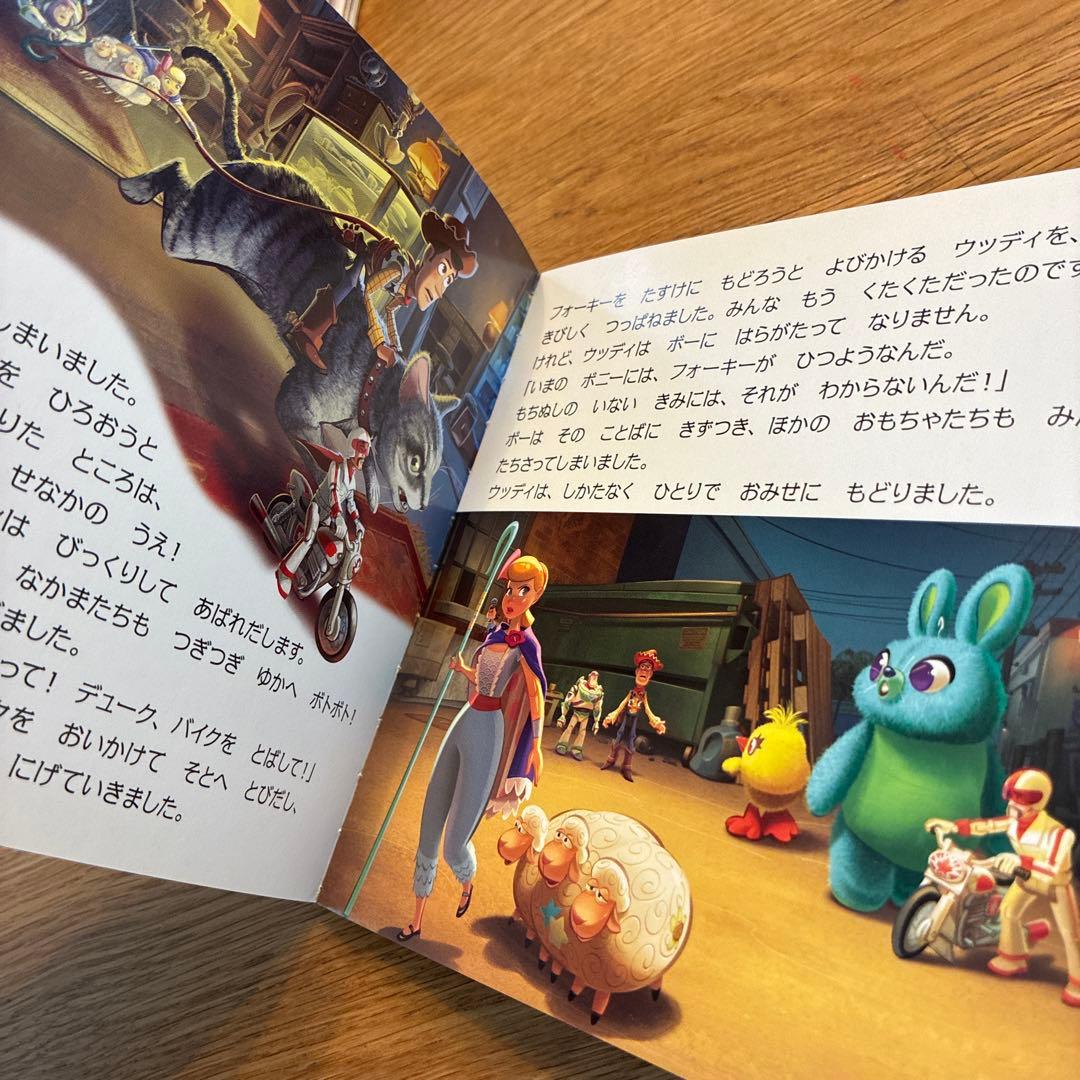 しまいました。
を ひろおうと
りた ところは、
せなかの うえ!
は びっくりして あばれだします。
なかまたちも つぎつぎ ゆかへ ボトボト!
ました。
って! デューク、バイクを とばして!」
を おいかけて そとへ とびだし、
にげていきました。
フォーキーを たすけに もどろうと よびかける ウッディを、
きびしく つっぱねました。みんな もう くたくただったのです
けれど、ウッディは ボーに はらがたって なりません。
「いまの ボニーには、フォーキーが ひつようなんだ。
もちぬしの いない きみには、それが わからないんだ!」
ボーは その ことばに きずつき、ほかの おもちゃたちも み
たちさってしまいました。
ウッディは、しかたなく ひとりで おみせに もどりました。